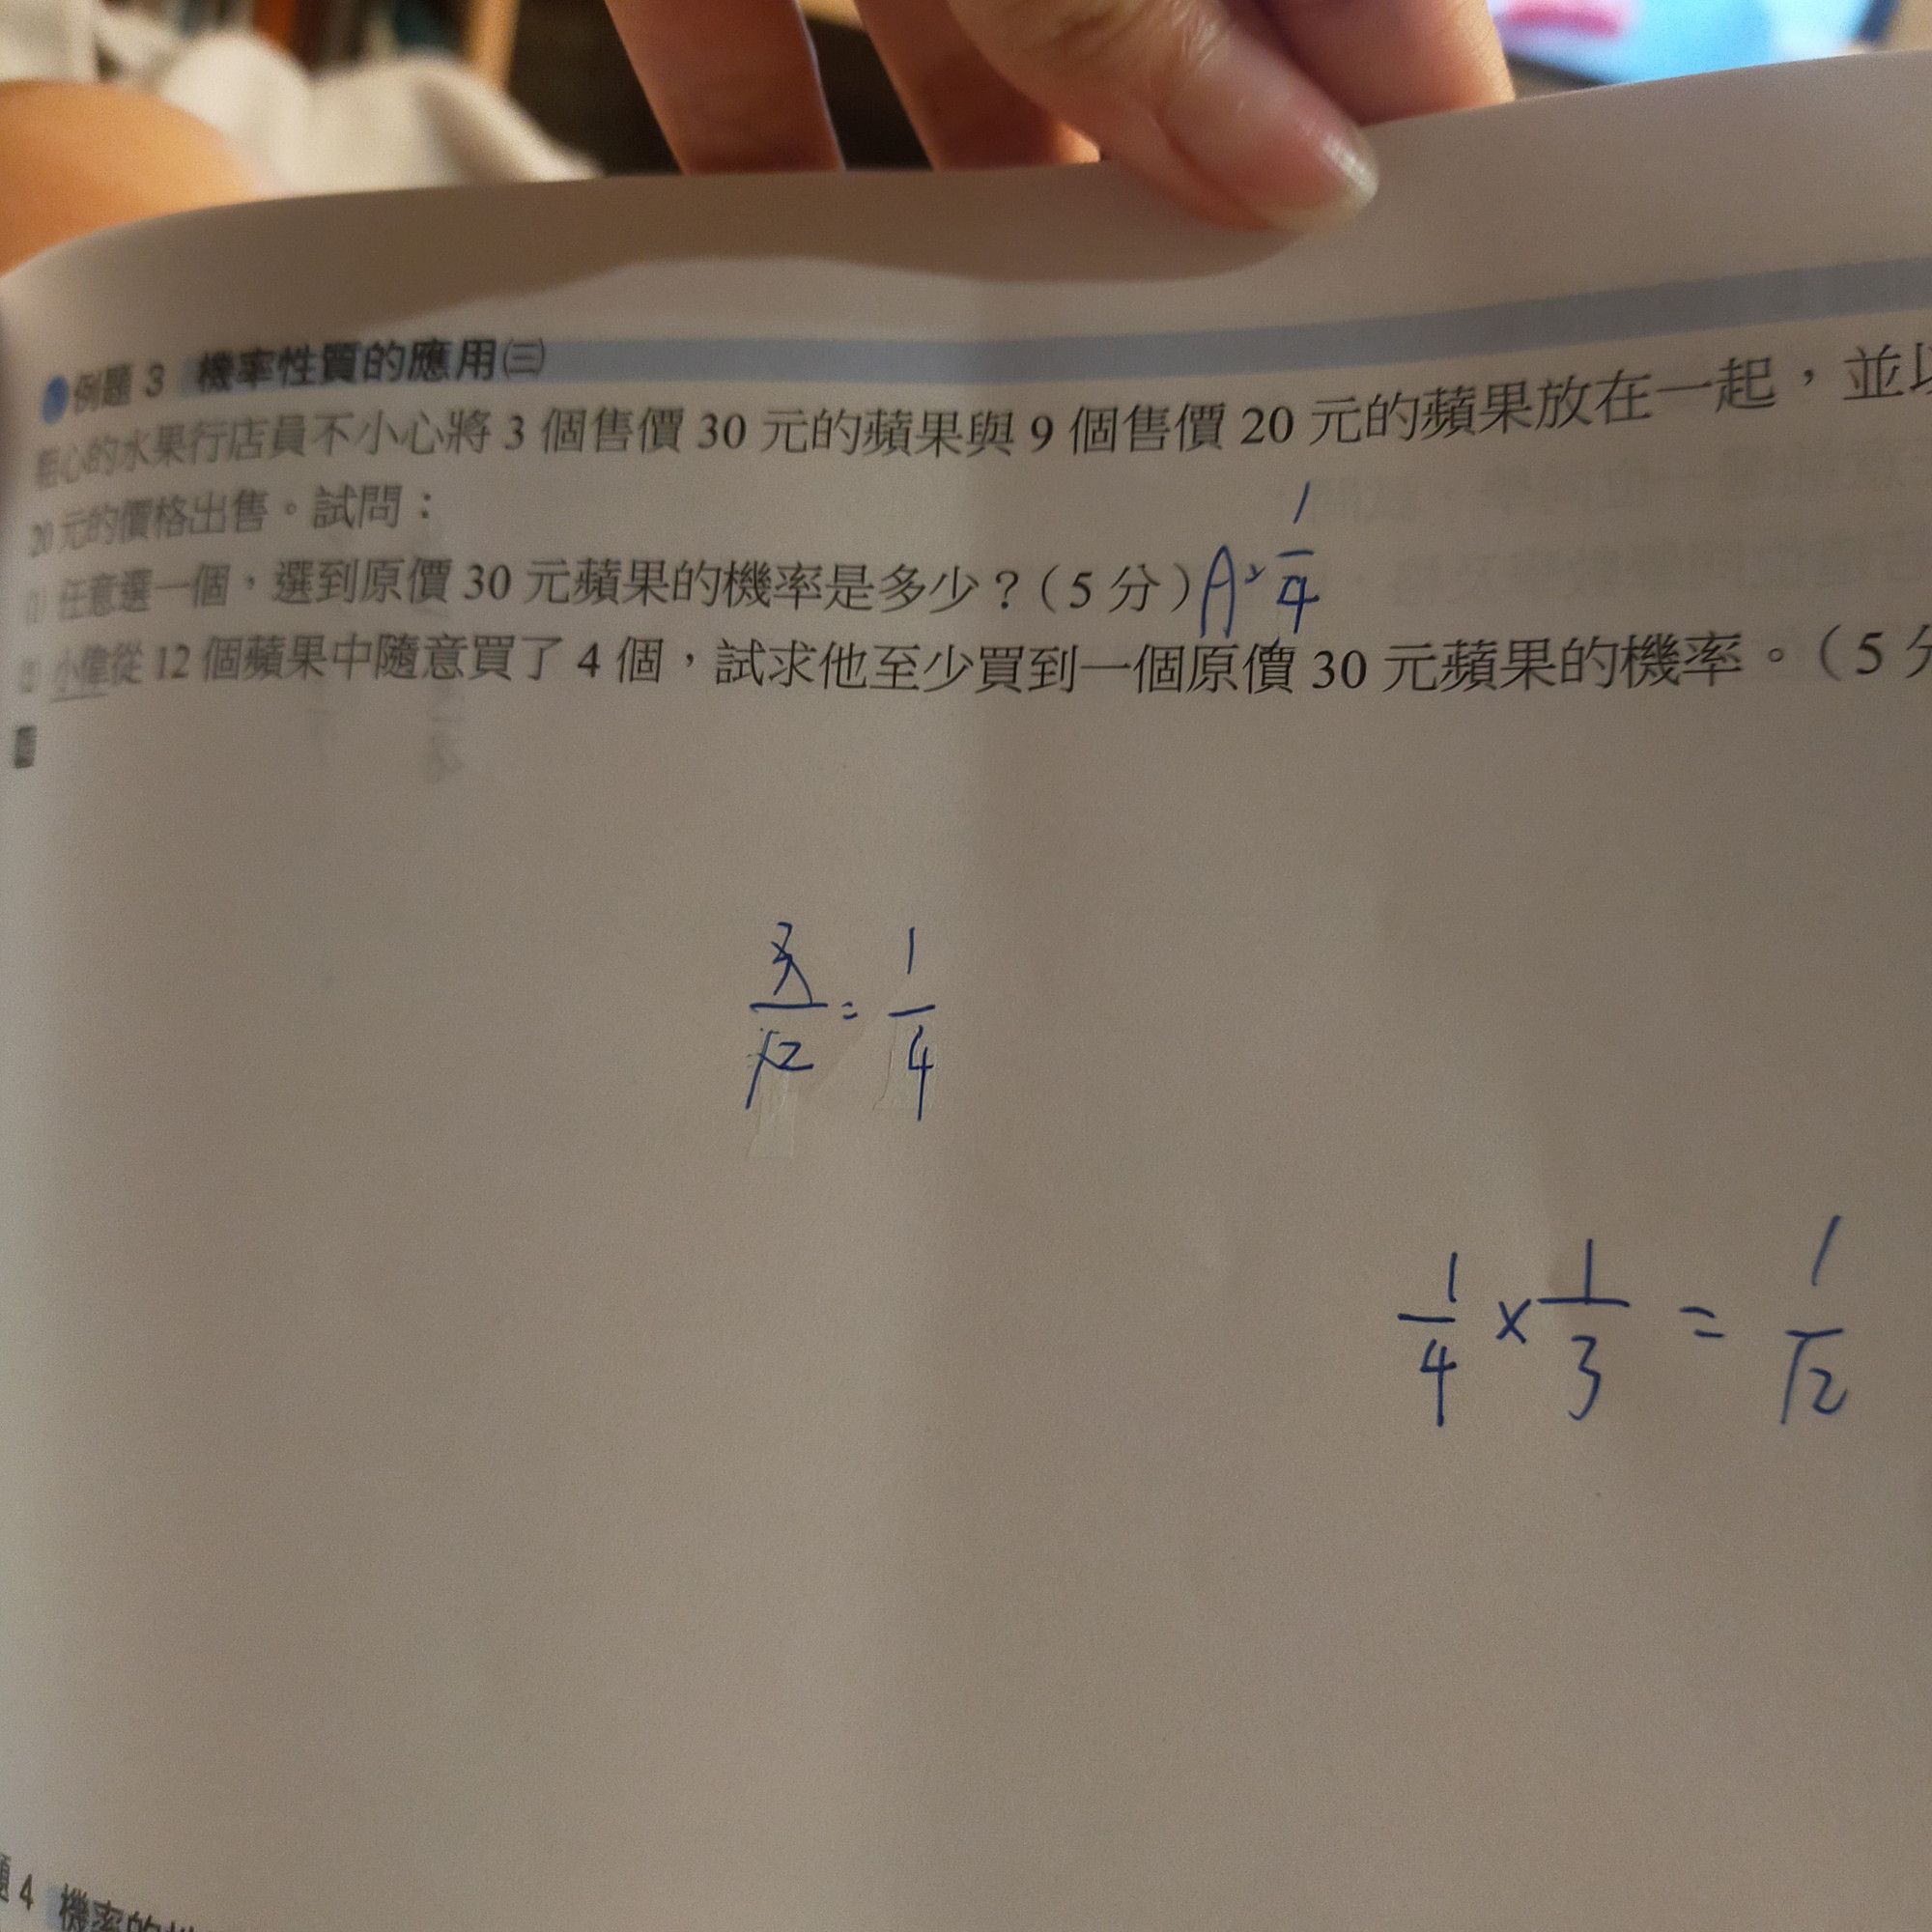 例題 3 機率性質的應用㈢
粗心的水果行店員不小心將 3 個售價 30 元的蘋果與 9 個售價 20 元的蘋果放在一起，並以
20 元的價格出售。試問：
(1) 任意選一個，選到原價 30 元蘋果的機率是多少？（5 分） A: 1/4
(2) 小偉從 12 個蘋果中隨意買了 4 個，試求他至少買到一個原價 30 元蘋果的機率。（5 分
3/12 = 1/4
1/4 × 1/3 = 1/12
題 4 機率的